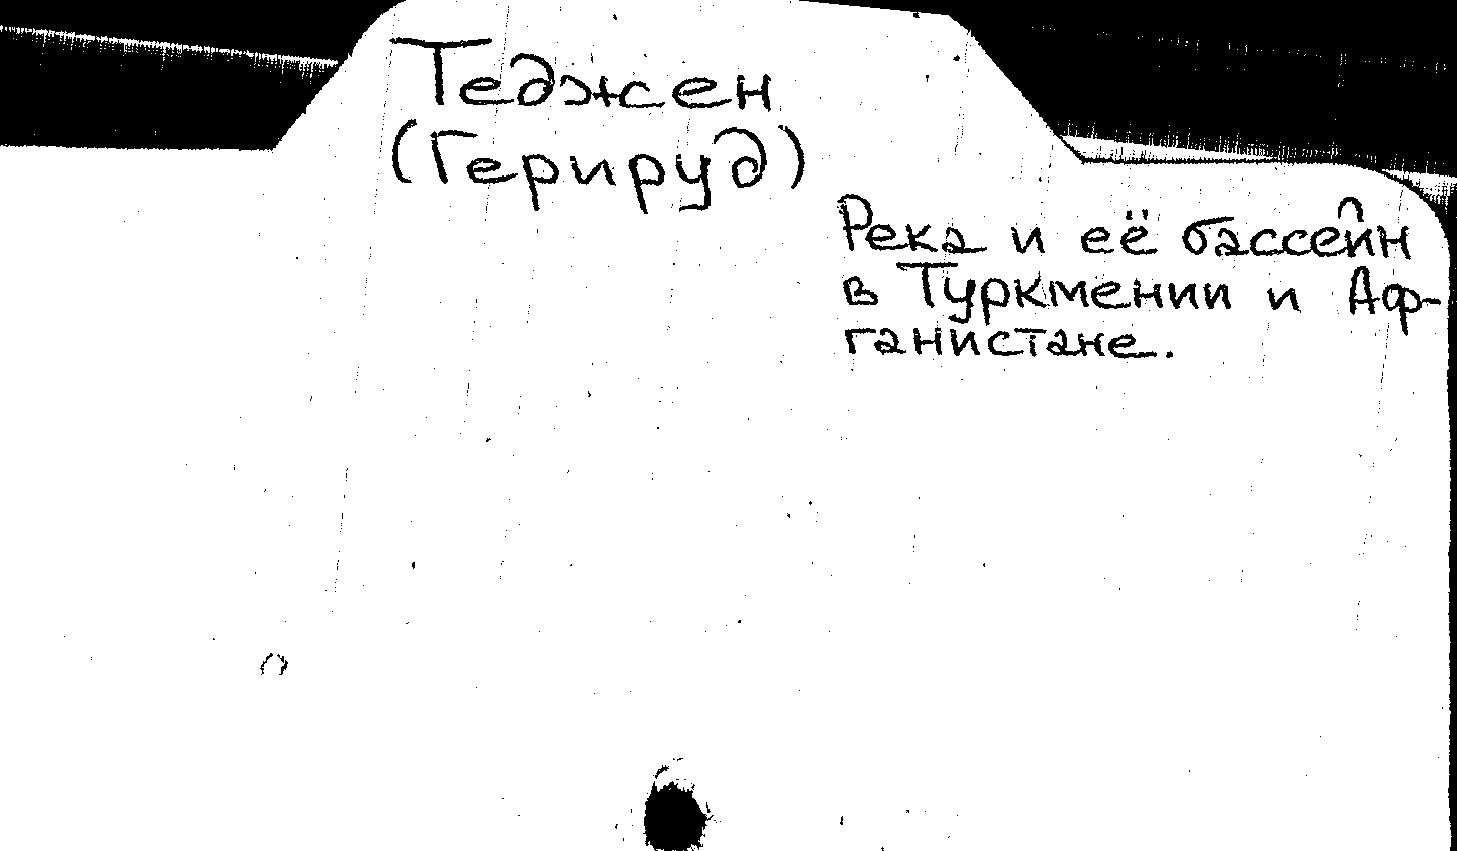 Теджен
(Герируд)
Река и её бассейн
в Туркмении и Аф-
ганистане.